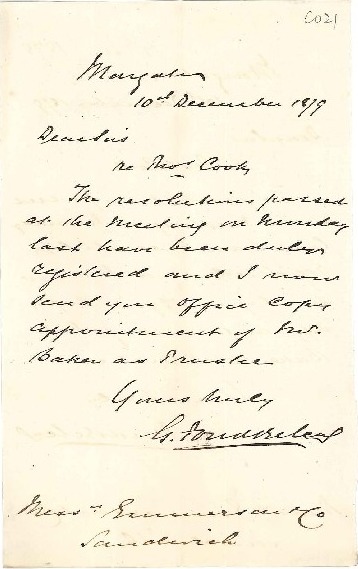 C021
Margate
10th December 1879
Dear Sirs
re Thos Cook
The resolutions passed
at the Meeting on Monday
last have been duly
registered and I now
send you office copy
appointment of Mr.
Baker as Trustee
Yours truly
Messrs Emmerson & Co
Sandwich